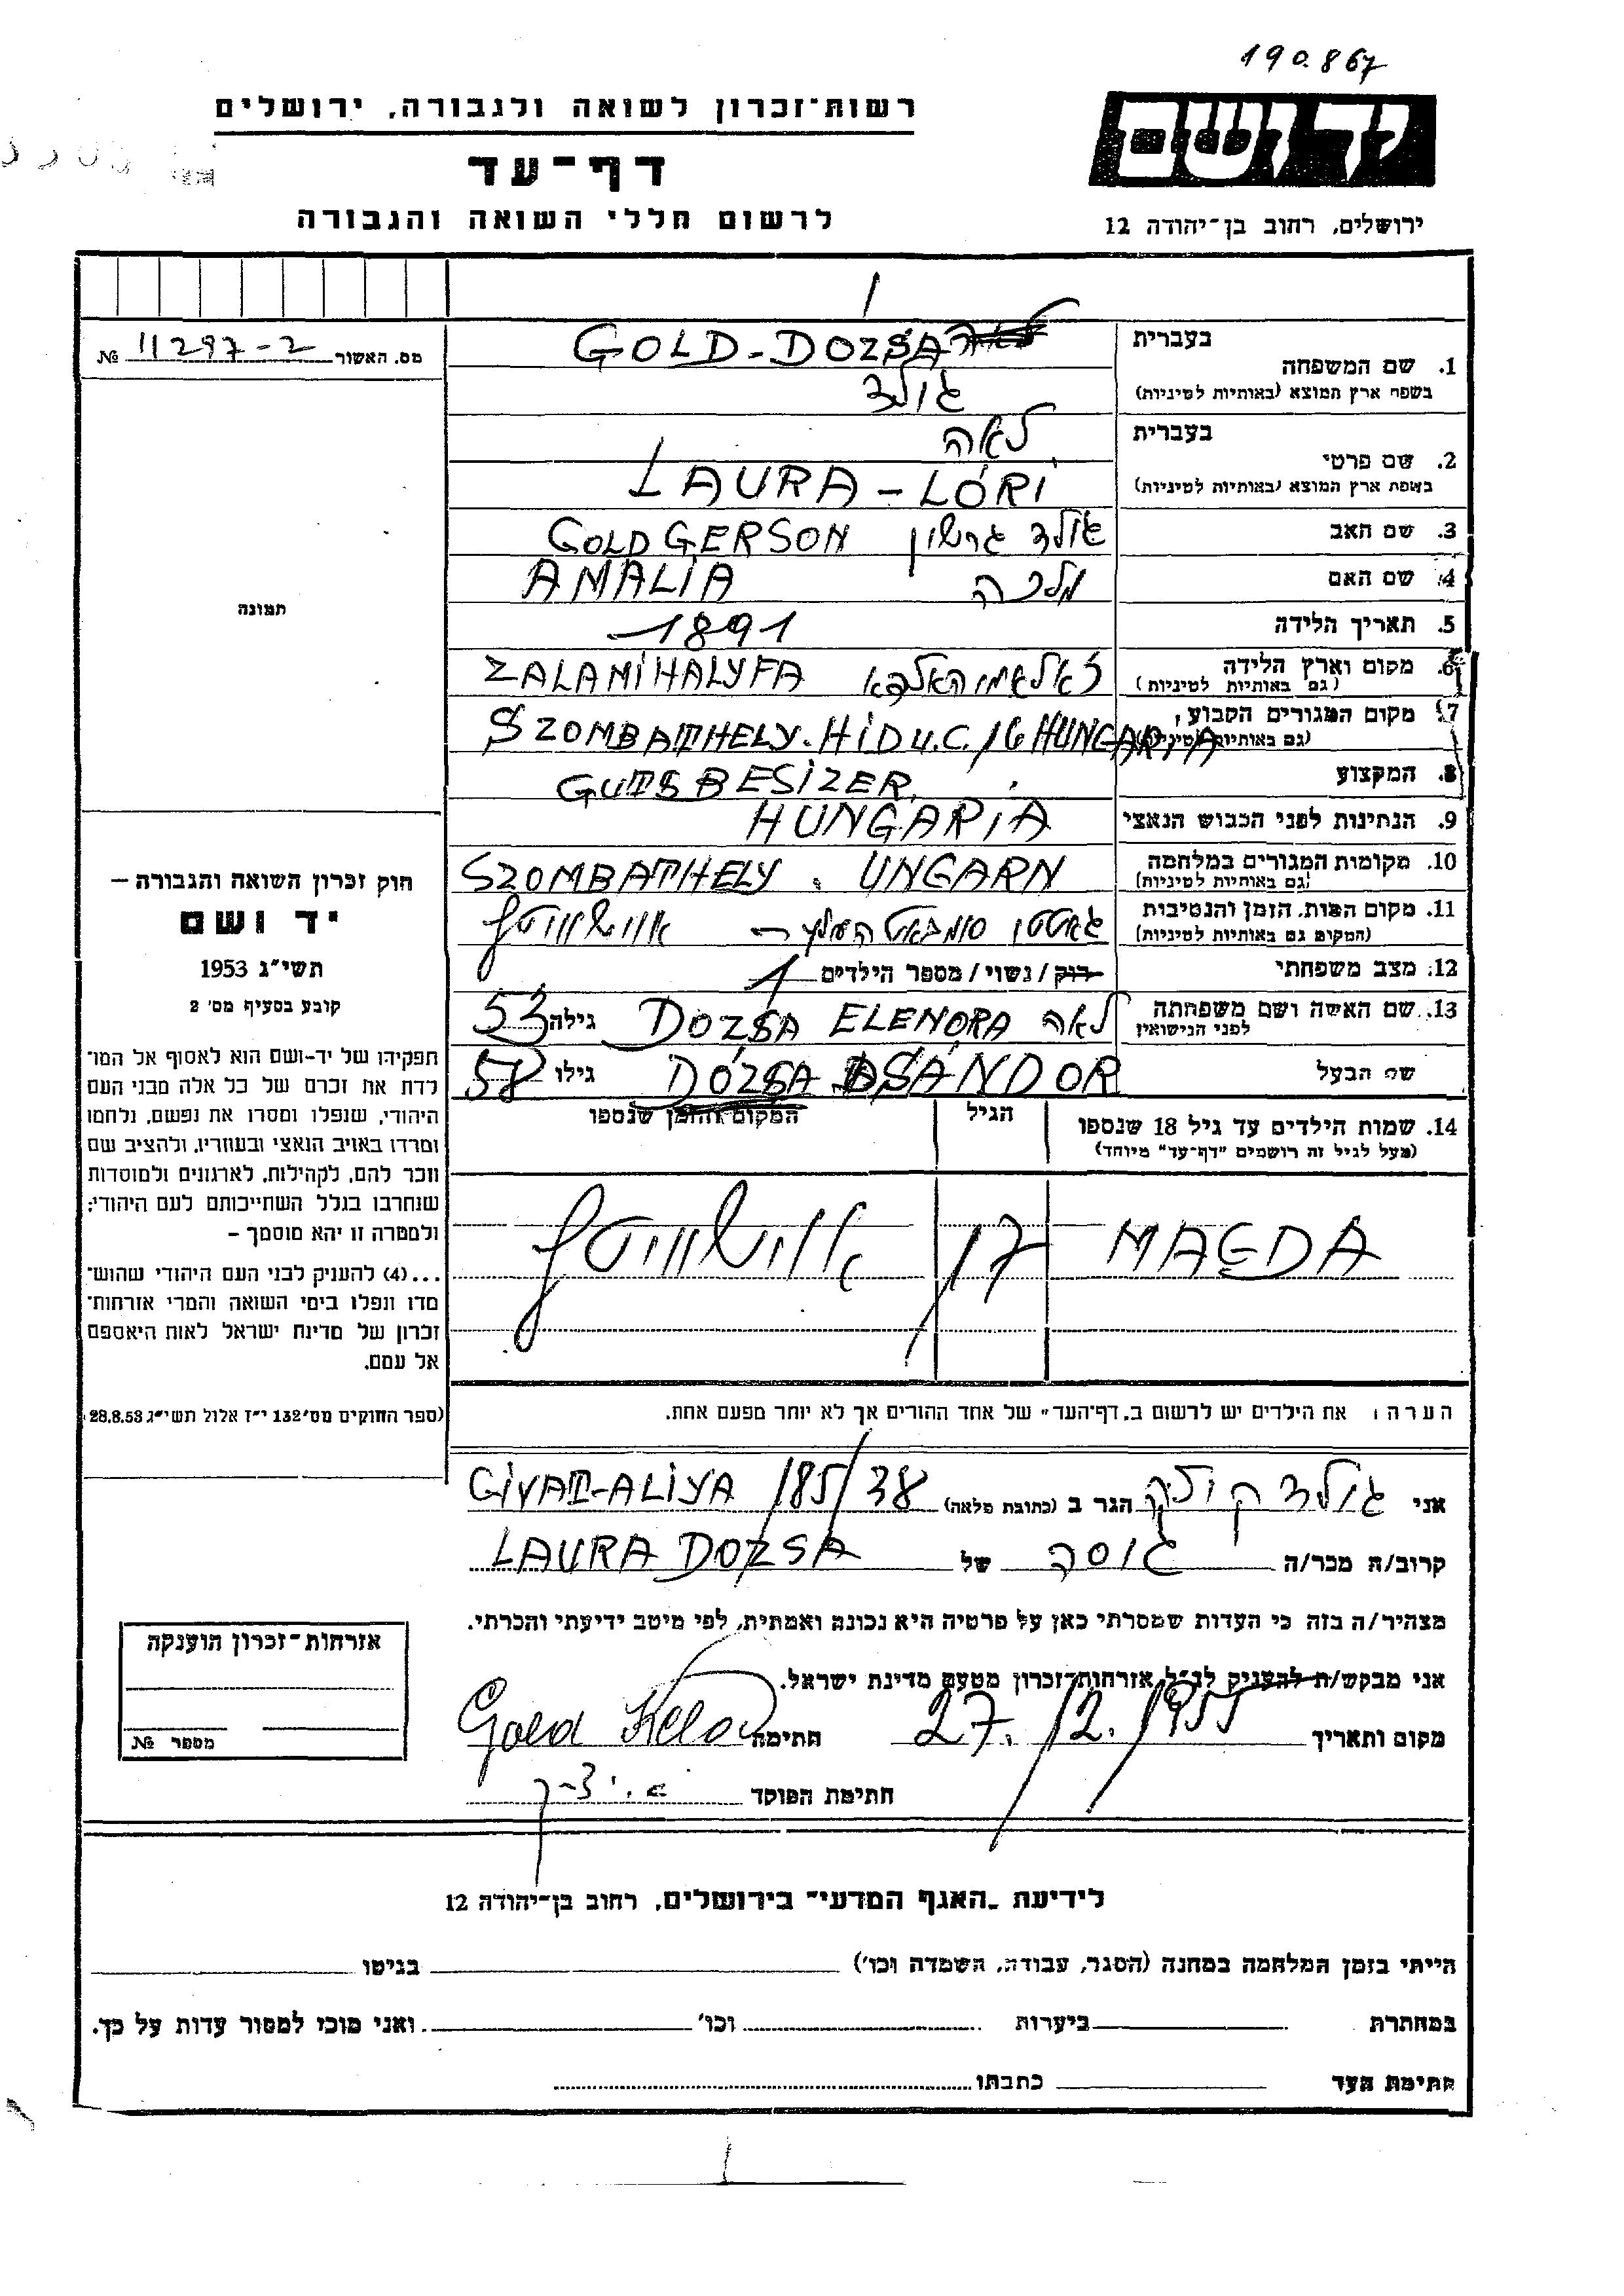 190.867
רשות־זכרון לשואה ולגבורה, ירושלים
יד ושם
דף־עד
לרשום חללי השואה והגבורה
ירושלים, רחוב בן־יהודה 12
מס. האשור 11297-2 №
תמונה
1. שם המשפחה
בעברית GOLD-DOZSA
בשפת ארץ המוצא (באותיות לטיניות) גולד
2. שם פרטי
בעברית לאה
בשפת ארץ המוצא (באותיות לטיניות) LAURA-LÓRI
3. שם האב גולד גרשון GOLD GERSON
4. שם האם מלכה AMALIA
5. תאריך הלידה 1891
6. מקום וארץ הלידה ZALAMIHALYFA
(גם באותיות לטיניות)
7. מקום המגורים הקבוע SZOMBATHELY. HID U.C. 16 HUNGARIA
(גם באותיות לטיניות)
8. המקצוע GUTSBESIZER
9. הנתינות לפני הכבוש הנאצי HUNGARIA
10. מקומות המגורים במלחמה SZOMBATHELY. UNGARN
(גם באותיות לטיניות)
11. מקום המות, הזמן והנסיבות אוישוויטץ
(המקום גם באותיות לטיניות)
12. מצב משפחתי רוק / נשוי / מספר הילדים 1
13. שם האשה ושם משפחתה לאה DOZSA ELENORA גילה 53
לפני הנישואין
שם הבעל DÓZSA SÁNDOR גילו 58
14. שמות הילדים עד גיל 18 שנספו הגיל המקום והזמן שנספו
(מעל לגיל זה רושמים "דף־עד" מיוחד)
MAGDA 17 אוישוויטץ
הערה: את הילדים יש לרשום ב„דף־העד" של אחד ההורים אך לא יותר מפעם אחת.
חוק זכרון השואה והגבורה –
יד ושם
תשי"ג 1953
קובע בסעיף מס' 2
תפקידו של יד-ושם הוא לאסוף אל המו־
לדת את זכרם של כל אלה מבני העם
היהודי, שנפלו ומסרו את נפשם, נלחמו
ומרדו באויב הנאצי ובעוזריו, ולהציב שם
וזכר להם, לקהילות, לארגונים ולמוסדות
שנחרבו בגלל השתייכותם לעם היהודי;
ולמטרה זו יהא מוסמך –
...(4) להעניק לבני העם היהודי שהוש־
מדו ונפלו בימי השואה והמרי אזרחות־
זכרון של מדינת ישראל לאות היאספם
אל עמם.
(ספר החוקים מס' 132 י"ז אלול תשי"ג 28.8.53)
אני גולד הגר ב (כתובת מלאה) GIVAT-ALIYA 185/38
קרוב/ת מכר/ה גיסה של LAURA DOZSA
מצהיר/ה בזה כי העדות שמסרתי כאן על פרטיה היא נכונה ואמתית, לפי מיטב ידיעתי והכרתי.
אני מבקש/ת להעניק לנ"ל אזרחות־זכרון מטעם מדינת ישראל.
מקום ותאריך 27./12./1955 חתימה Gold
חתימת הפוקד
אזרחות־זכרון הוענקה
מספר №
לידיעת „האגף המדעי" בירושלים, רחוב בן־יהודה 12
הייתי בזמן המלחמה במחנה (הסגר, עבודה, השמדה וכו') בגיטו
במחתרת ביערות וכו' ואני מוכן למסור עדות על כך.
חתימת העד כתבתו